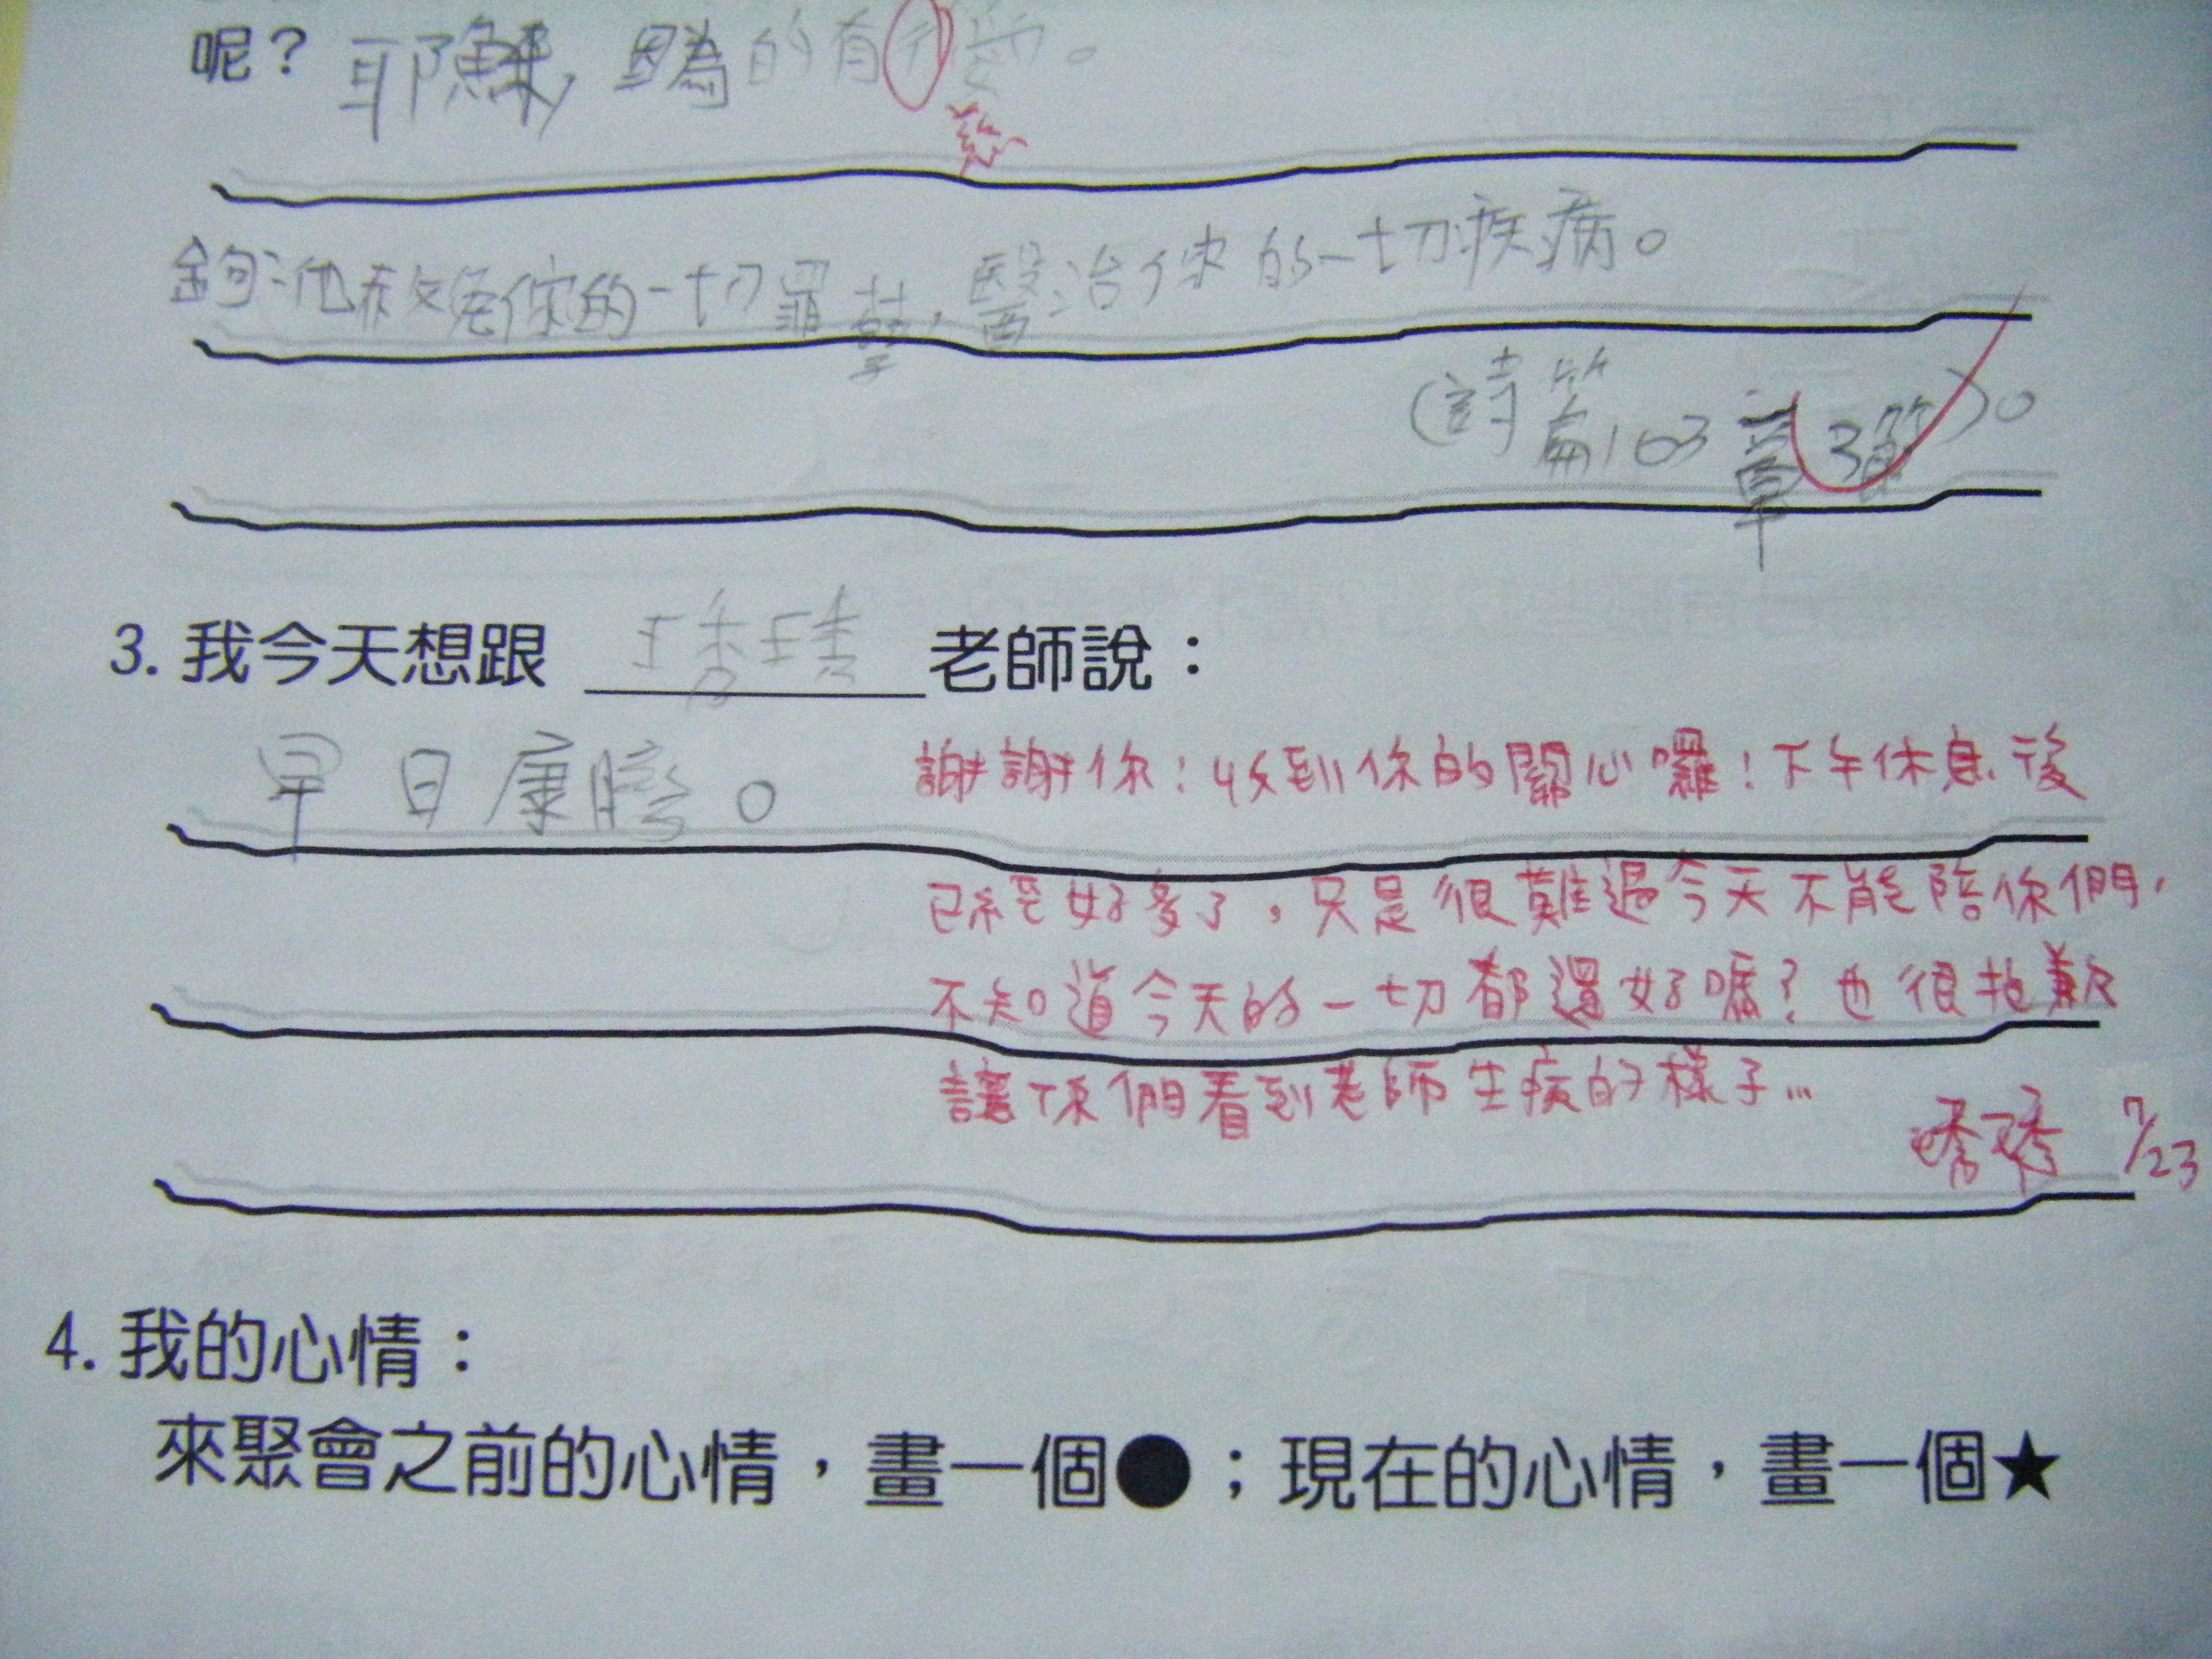 呢？耶穌，因為的有愛。
鉤：他赦免你的一切罪孽，醫治你的一切疾病。
(詩篇103章3節)。
3. 我今天想跟 老師說：
早日康膥。
謝謝你！收到你的關心囉！下午休息後
已經好多了，只是很難過今天不能陪你們，
不知道今天的一切都還好嗎？也很抱歉
讓你們看到老師生病的樣子…
7/23
4. 我的心情：
來聚會之前的心情，畫一個●；現在的心情，畫一個★